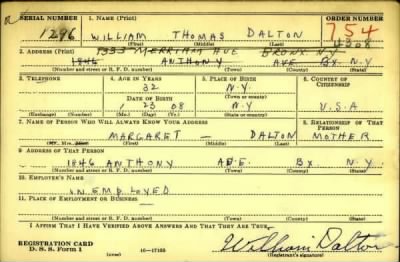 SERIAL NUMBER 1. NAME (Print) ORDER NUMBER
1296 WILLIAM THOMAS DALTON 754
(First) (Middle) (Last)
2. ADDRESS (Print) 1333 MERRIAM AVE BRONX N.Y.
1846 ANTHONY AVE BX. N.Y.
(Number and street or R. F. D. number) (Town) (County) (State)
3. TELEPHONE 4. AGE IN YEARS 5. PLACE OF BIRTH 6. COUNTRY OF CITIZENSHIP
32 N.Y.
DATE OF BIRTH (Town or county)
1 23 08 N.Y. U.S.A
(Exchange) (No.) (Mo.) (Day) (Yr.) (State or country)
7. NAME OF PERSON WHO WILL ALWAYS KNOW YOUR ADDRESS 8. RELATIONSHIP OF THAT PERSON
MARGARET — DALTON MOTHER
(First) (Middle) (Last)
9. ADDRESS OF THAT PERSON
1846 ANTHONY AVE. BX. N.Y.
(Number and street or R. F. D. number) (Town) (County) (State)
10. EMPLOYER'S NAME
UNEMPLOYED
11. PLACE OF EMPLOYMENT OR BUSINESS
(Number and street or R. F. D. number) (Town) (County) (State)
I AFFIRM THAT I HAVE VERIFIED ABOVE ANSWERS AND THAT THEY ARE TRUE.
REGISTRATION CARD
D. S. S. Form 1 (over) 16—17105 William Dalton
(Registrant's signature)